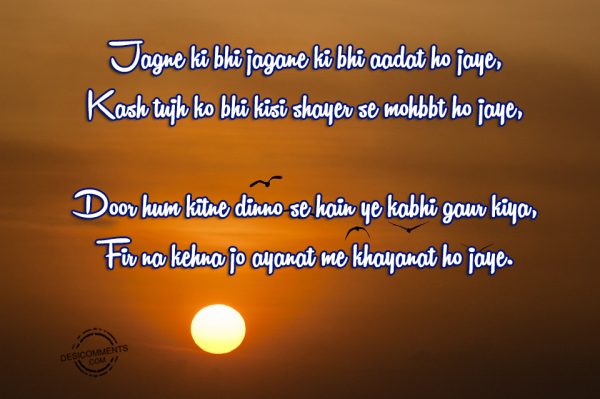 Jagne ki bhi jagane ki bhi aadat ho jaye,
Kash tujh ko bhi kisi shayer se mohbbt ho jaye,
Door hum kitne dinno se hain ye kabhi gaur kiya,
Fir na kehna jo ayanat me khayanat ho jaye.
DESICOMMENTS
.COM